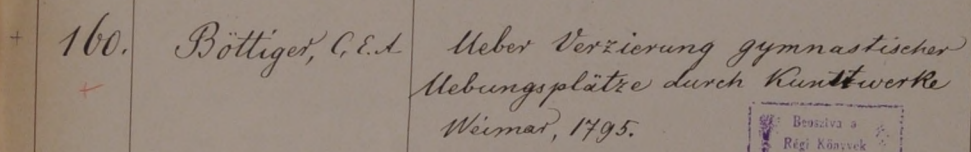 + 160. Böttiger, C. E. A. Ueber Verzierung gymnastischer
+ Uebungsplätze durch Kunstwerke
Weimar, 1795.
Beosztva a
Régi Könyvek